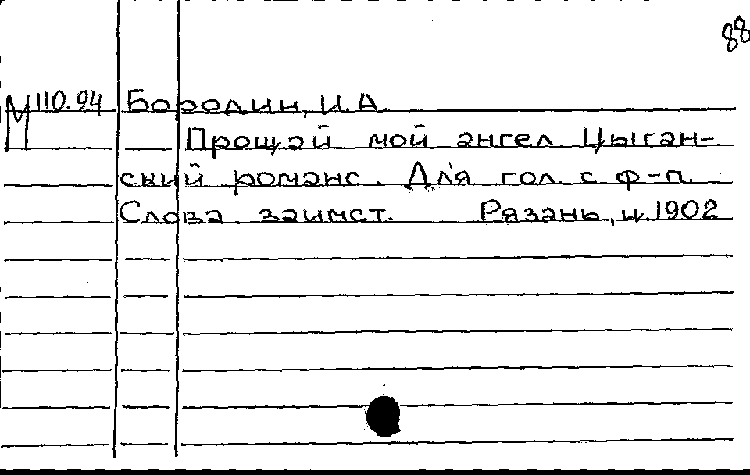 88
М 110.94 Бородин, И.А.
Прощай мой ангел Цыган-
ский романс. Для гол. с ф-п.
Слова заимст. Рязань, и. 1902